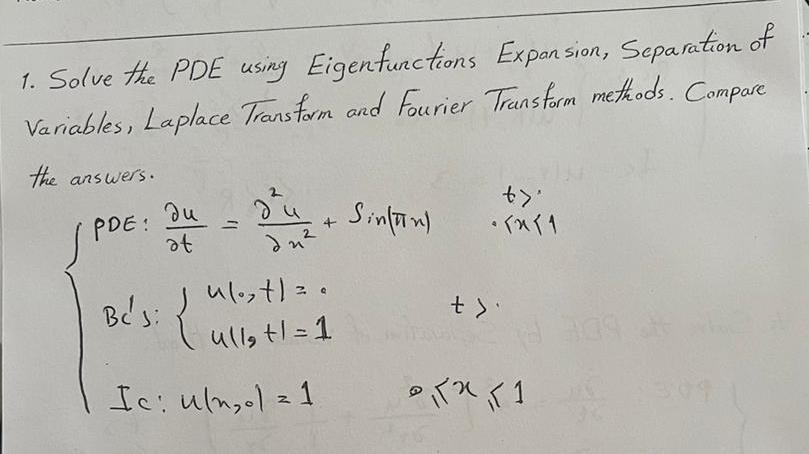 1. Solve the PDE using Eigenfunctions Expansion, Separation of
Variables, Laplace Transform and Fourier Transform methods. Compare
the answers.
PDE: ∂u/∂t = ∂²u/∂x² + Sin(πx) t>0 0<x<1
BC's: { u(0,t) = 0 t>0
u(1,t) = 1
IC: u(x,0) = 1 0≤x≤1